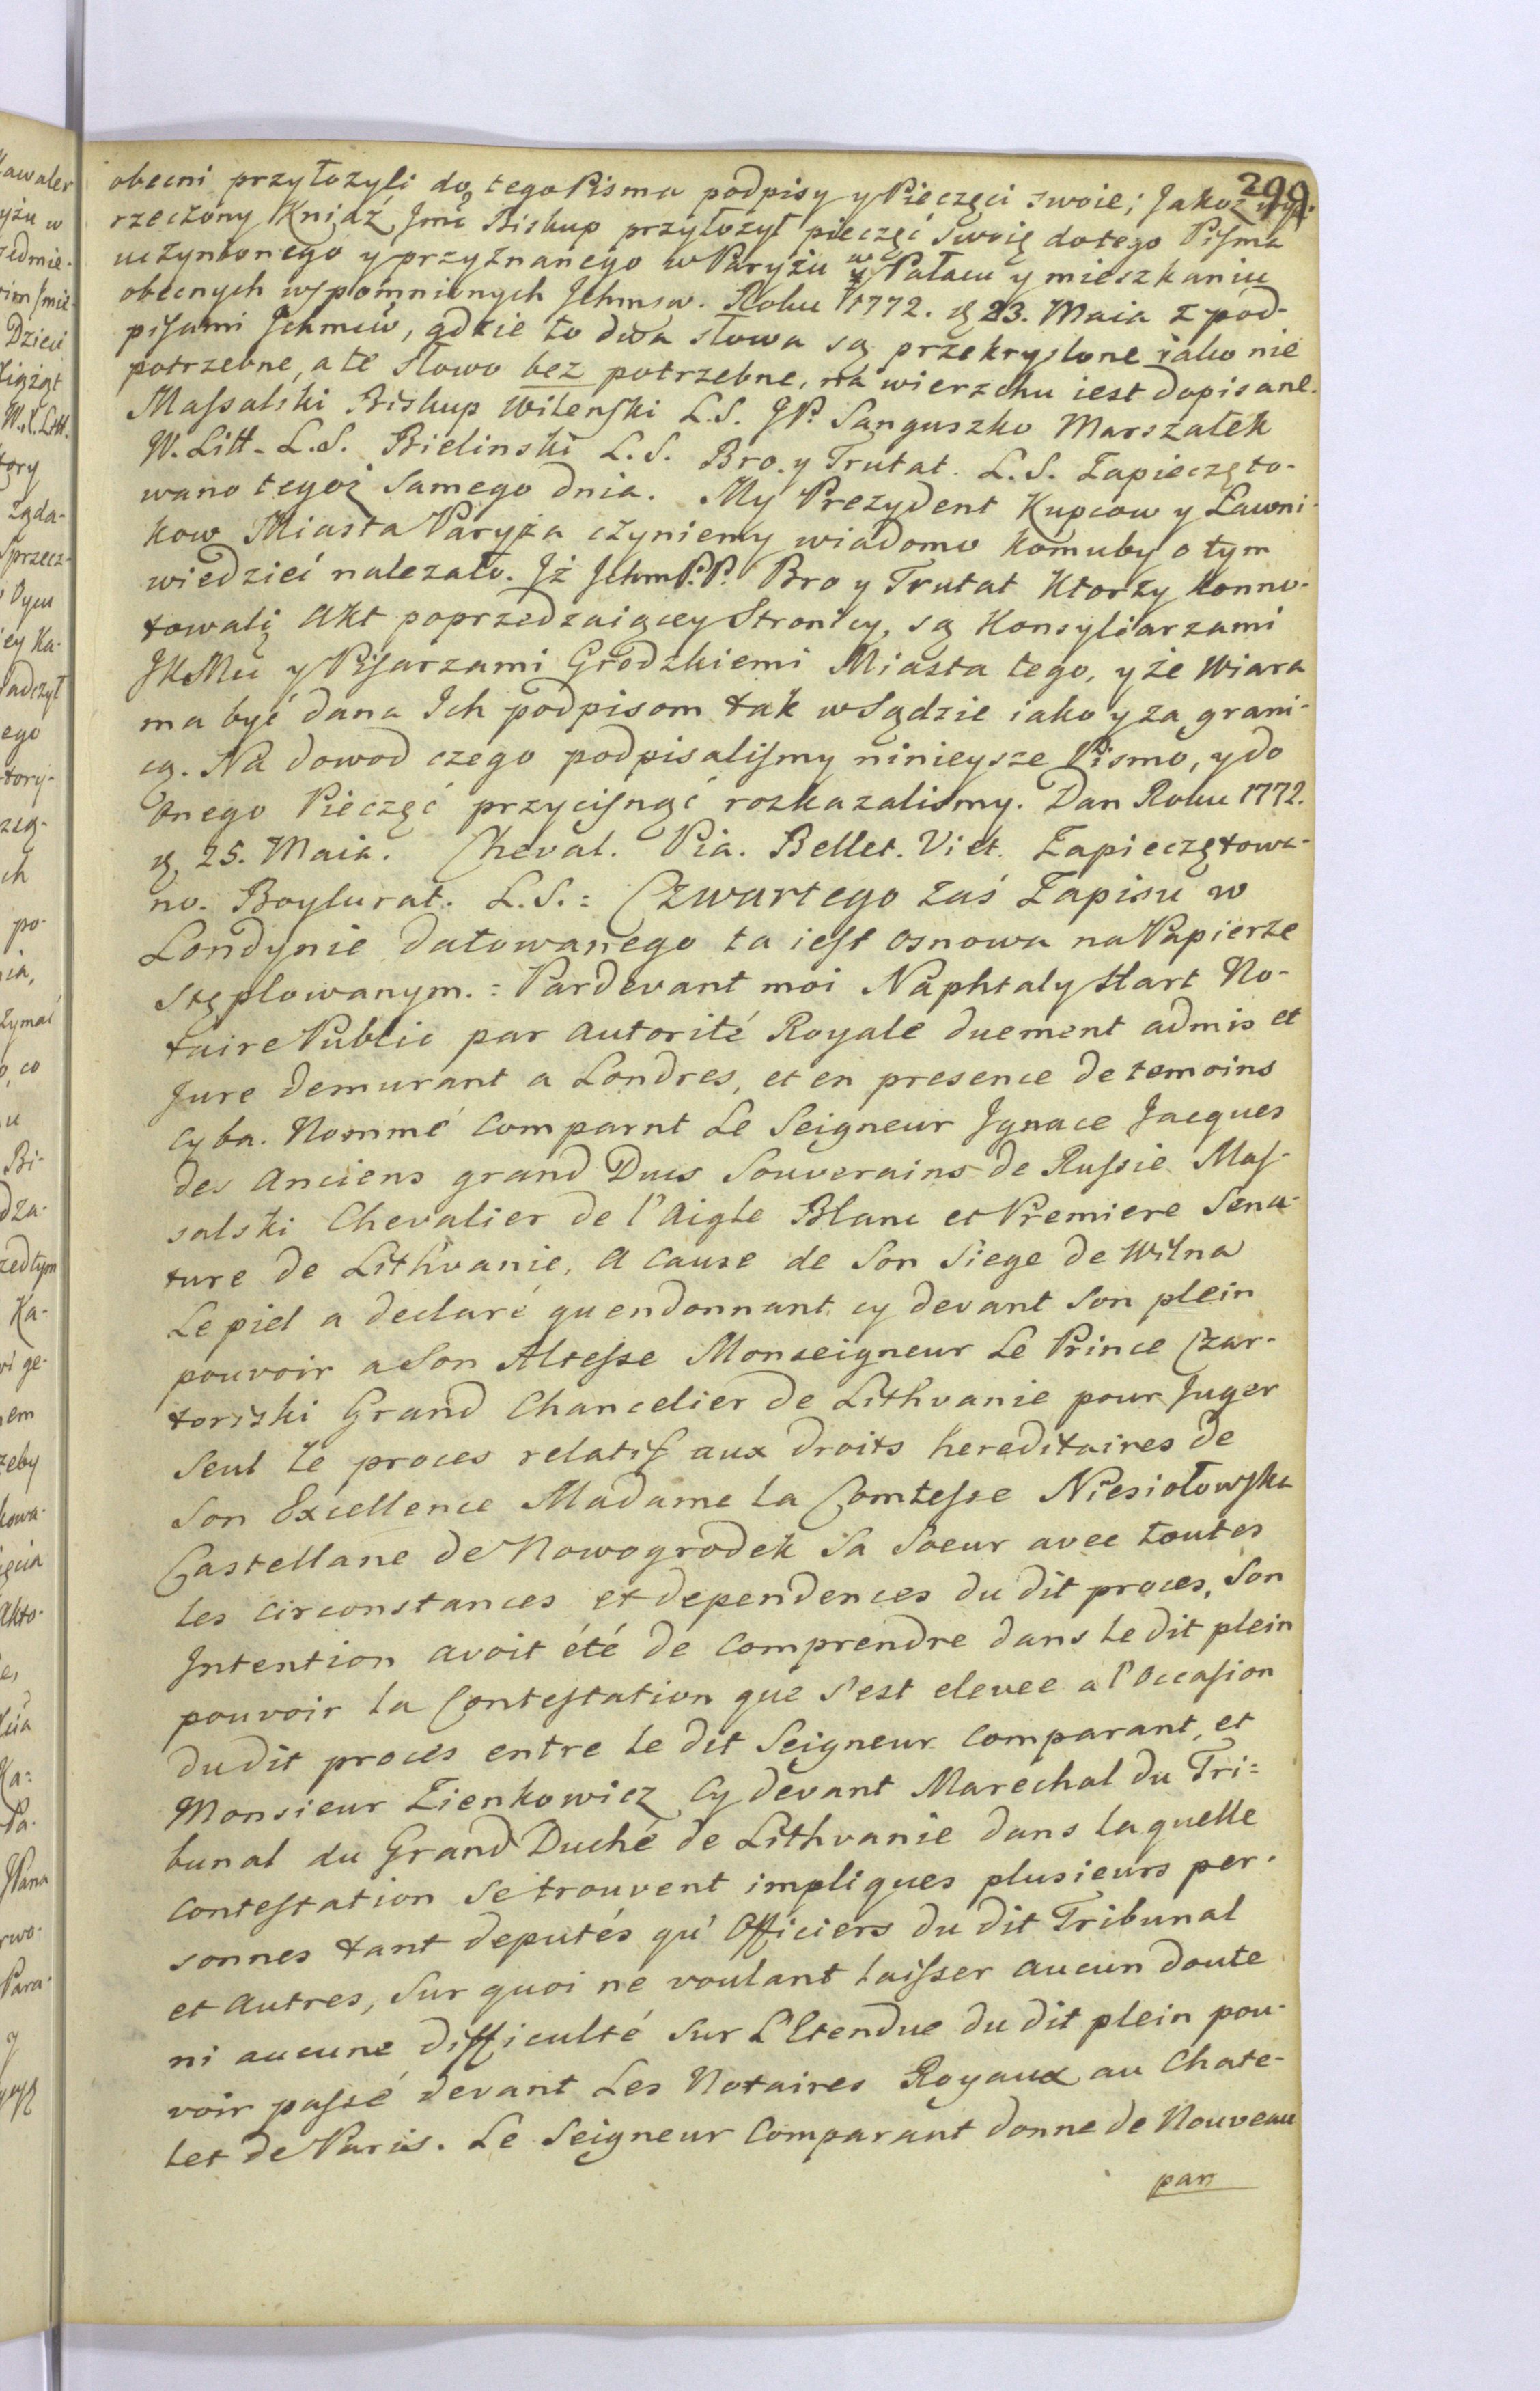 299
obecni przyłożyli do tego Pisma podpisy y Pieczęci swoie; Jakoż wyż.
rzeczony Kniaź Jmć Biskup przyłożył pieczęć swoię do tego Pisma
uczynionego y przyznanego w Paryżu w Pałacu y mieszkaniu
obecnych wspomnionych Jchmsw. Roku 1772. d 23. Maia z pod-
pisami Jchmciw, gdzie to dwa słowa są przekryslone iako nie
potrzebne, a te słowo bez potrzebne, na wierzchu iest dopisane.
Massalski Biskup Wilenski L.S. JP. Sanguszko Marszałek
W. Litt. L.S. Bielinski L.S. Bro. y Trutat. L.S. Zapieczęto-
wano tegoż samego dnia. My Prezydent Kupcow y Ławni-
kow Miasta Paryża czyniemy wiadomo komuby o tym
wiedzieć nalezało. Jż JchmP.P. Bro y Trutat Ktorzy konno-
towali Akt poprzedzaiącey Stronicy, są Konsyliarzami
JKMci y Pisarzami Grodzkiemi Miasta tego, y że Wiara
ma być dana Jch podpisom tak w Sądzie iako y za grani-
cą. Na dowod czego podpisalismy ninieysze Pismo, y do
onego Pieczęć przycisnąć rozkazalismy. Dan Roku 1772.
d 25. Maia. Cheval. Pia. Bellet. Viet. Zapieczętowa-
no. Boylurat. L.S. = Czwartego zaś Zapisu w
Londynie datowanego ta iest osnowa na Papierze
stęplowanym. = Pardevant moi Naphtaly Hart No-
taire Public par autorité Royale duement admis et
Jure demurant a Londres, et en presence de temoins
cy ba. Nommé comparnt Le Seigneur Jgnace Jacques
des Anciens grand Ducs Souverains de Russie Mas-
salski Chevalier de l'Aigle Blanc et Premiere Sena-
ture de Lithvanie, A cause de Son Siege de Wilna
Le piel a declaré qu endonnant cy devant Son plein
pouvoir a Son Altesse Monseigneur Le Prince Czar-
toriski Grand Chancelier de Lithvanie pour Juger
Seul le proces relatif aux droits hereditaires de
Son Excellence Madame la Comtesse Niesiołowska
Castellane de Nowogrodek Sa Soeur avec toutes
les circonstances et dependences du dit proces, Son
Jntention avoit été de comprendre dans le dit plein
pouvoir la Contestation que s'est elevee a l'Occasion
du dit proces entre le dit Seigneur comparant, et
Monsieur Zienkowicz Cy devant Marechal du Tri=
bunal du Grand Duché de Lithvanie dans laquelle
contestation Se trouvent impliques plusieurs per-
sonnes tant deputés qu' Officiers du dit Tribunal
et Autres, Sur quoi ne voulant laisser Aucun doute
ni aucune difficulté sur L'Etendue du dit plein pou-
voir passé devant Les Notaires Royaux au Chate-
let de Paris. Le Seigneur Comparant donne de Nouveau
par